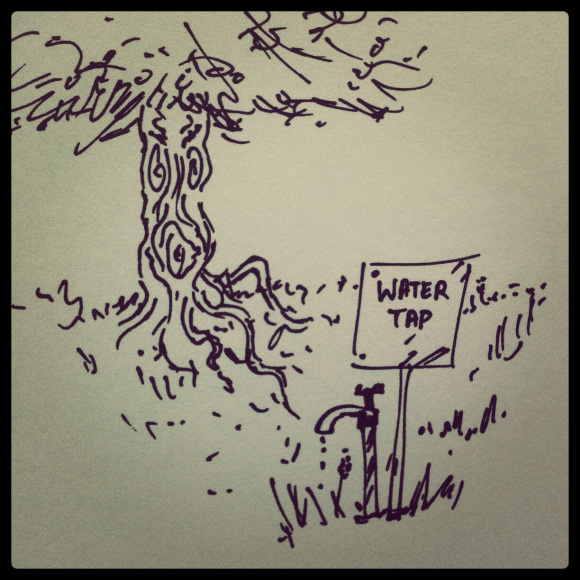 WATER
TAP